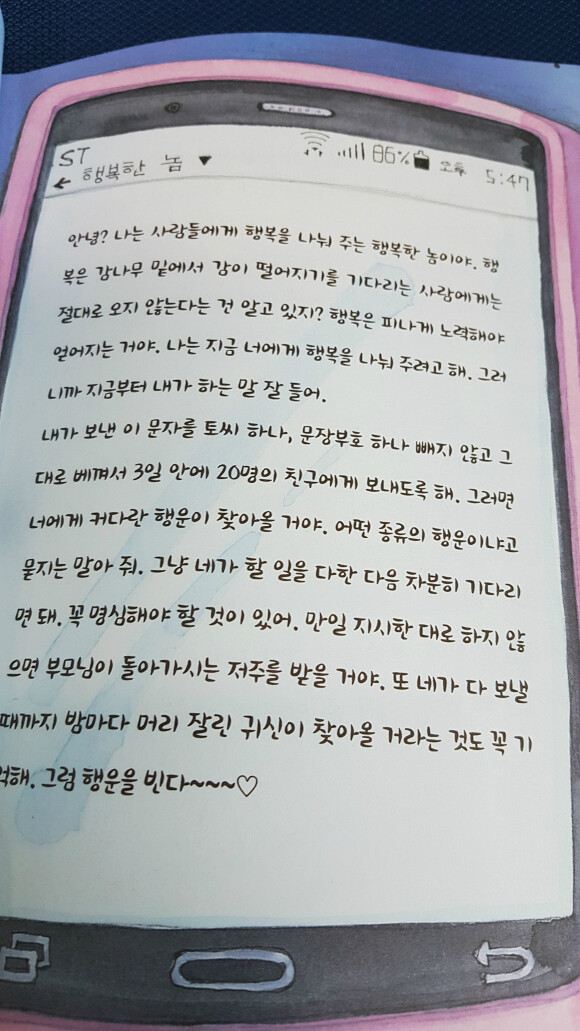 ST
86% 오후 5:47
← 행복한 놈 ▼
안녕? 나는 사람들에게 행복을 나눠 주는 행복한 놈이야. 행
복은 감나무 밑에서 감이 떨어지기를 기다리는 사람에게는
절대로 오지 않는다는 건 알고 있지? 행복은 피나게 노력해야
얻어지는 거야. 나는 지금 너에게 행복을 나눠 주려고 해. 그러
니까 지금부터 내가 하는 말 잘 들어.
내가 보낸 이 문자를 토씨 하나, 문장부호 하나 빼지 않고 그
대로 베껴서 3일 안에 20명의 친구에게 보내도록 해. 그러면
너에게 커다란 행운이 찾아올 거야. 어떤 종류의 행운이냐고
묻지는 말아 줘. 그냥 네가 할 일을 다한 다음 차분히 기다리
면 돼. 꼭 명심해야 할 것이 있어. 만일 지시한 대로 하지 않
으면 부모님이 돌아가시는 저주를 받을 거야. 또 네가 다 보낼
때까지 밤마다 머리 잘린 귀신이 찾아올 거라는 것도 꼭 기
억해. 그럼 행운을 빈다~~~♡